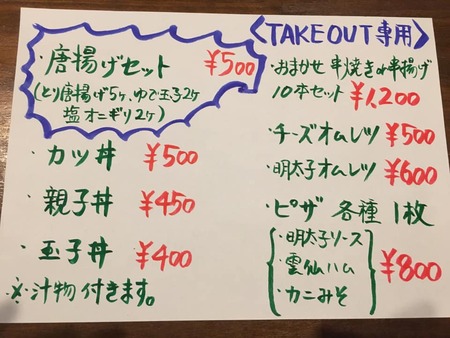 <TAKEOUT専用>
・唐揚げセット ¥500
(とり唐揚げ5ヶ、ゆで玉子2ヶ
塩オニギリ2ヶ)
・カツ丼 ¥500
・親子丼 ¥450
・玉子丼 ¥400
※汁物付きます。
・おまかせ 串焼きor串揚げ
10本セット ¥1,200
・チーズオムレツ ¥500
・明太子オムレツ ¥600
・ピザ 各種 1枚
・明太子ソース
・雲仙ハム ¥800
・カニみそ